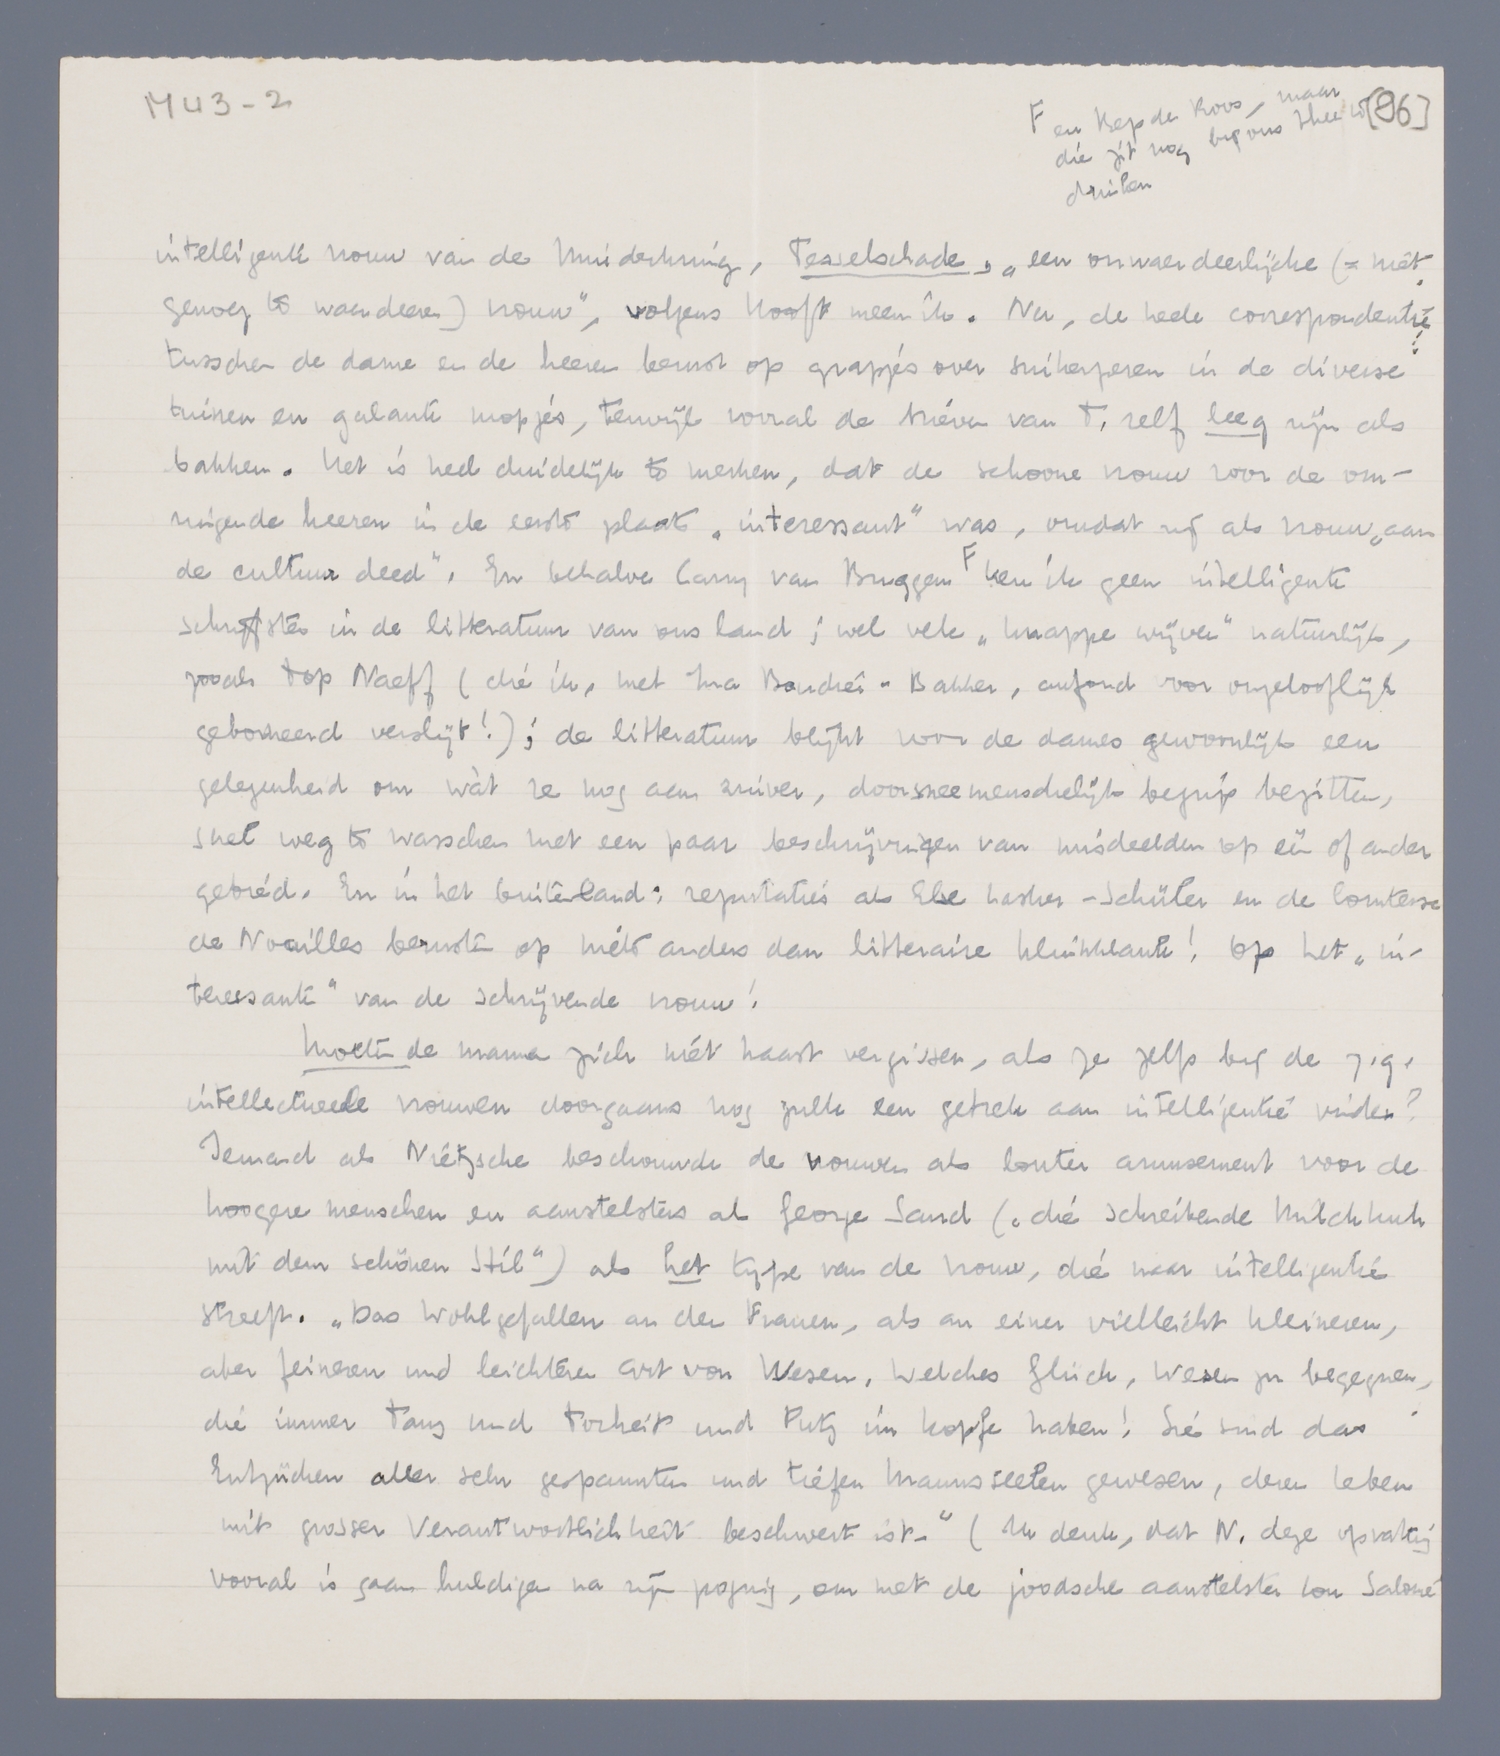 MU3-2
[86]
F en Bep de Roos, maar
die zit nog bij ons thee te
drinken
intelligente vrouw van de Muiderkring, Tesselschade, „een onwaerdeerlijcke (= niet
genoeg te waardeeren) vrouw", volgens Hooft meen ik. Nu, de heele correspondentie
tusschen de dame en de heeren berust op grapjes over suikerperen in de diverse
tuinen en galante mopjes, terwijl vooral de brieven van T. zelf leeg zijn als
bakken. Het is heel duidelijk te merken, dat de schoone vrouw voor de om-
ringende heeren in de eerste plaats „interessant" was, omdat zij als vrouw „aan
de cultuur deed". En behalve Carry van Bruggen F ken ik geen intelligente
schrijfster in de litteratuur van ons land; wel vele „knappe wijven" natuurlijk,
zooals Top Naeff (die ik, met Ina Boudier-Bakker, aufond voor ongelooflijk
geborneerd verslijt!); de litteratuur blijkt voor de dames gewoonlijk een
gelegenheid om wàt ze nog aan zuiver, doorsneemenschelijk begrip bezitten,
snel weg te wasschen met een paar beschrijvingen van misdeelden op één of ander
gebied. En in het buitenland: reputaties als Else Lasker-Schüler en de Comtesse
de Noailles berusten op niets anders dan litteraire kleinklante! Op het „in-
teressante" van de schrijvende vrouw!
Moeten de mannen zich niet haast vergissen, als ze zelfs bij de z.g.
intellectueele vrouwen doorgaans nog zulk een gebrek aan intelligentie vinden?
Iemand als Nietzsche beschouwde de vrouwen als louter amusement voor de
hoogere menschen en aanstelsters als George Sand („die schreibende Milchkuh
mit dem schönen Stil") als het type van de vrouw, die naar intelligentie
streeft. „Das Wohlgefallen an den Frauen, als an einer vielleicht kleineren,
aber feineren und leichteren Art von Wesen. Welches Glück, Wesen zu begegnen,
die immer Tanz und Torheit und Putz im Kopfe haben! Sie sind das
Entzücken aller sehr gespannten und tiefen Mannsseelen gewesen, deren Leben
mit grosser Verantwortlichkeit beschwert ist." (Ik denk, dat N. deze opvatting
vooral is gaan huldigen na zijn poging, om met de joodsche aanstelster Lou Salomé